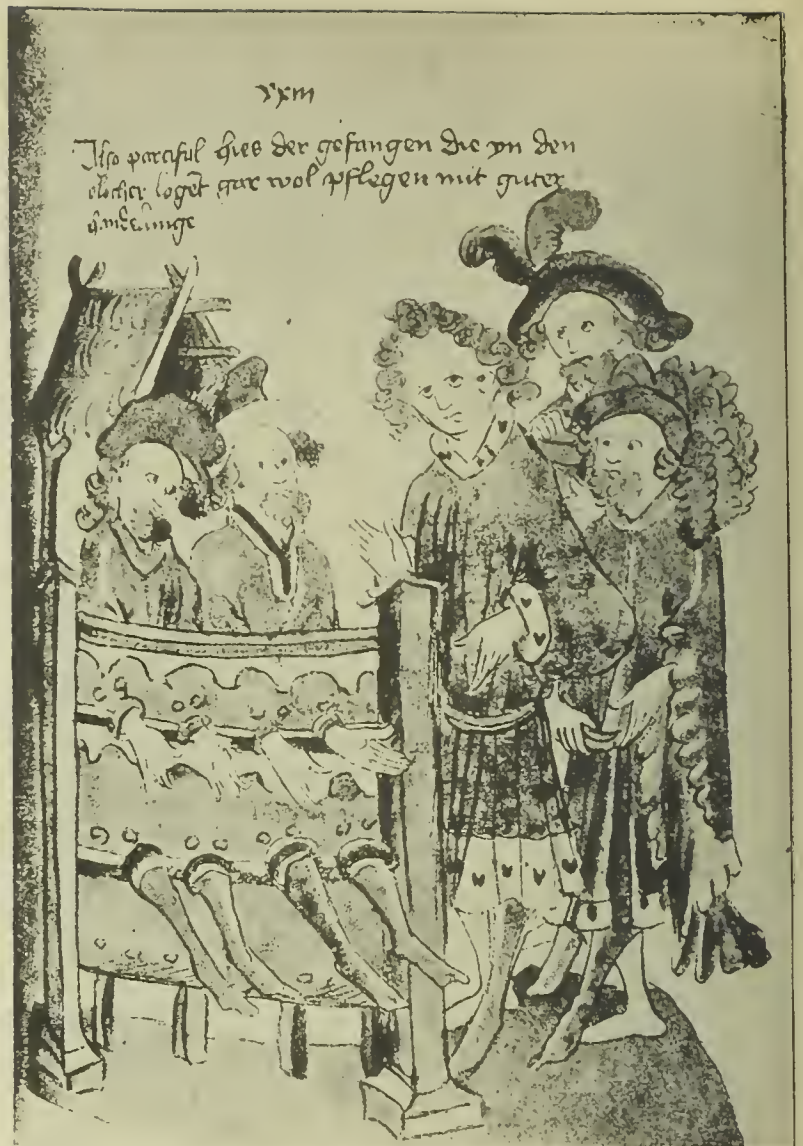 xxiii
Also parcifal hies der gefangen die yn den
löcher logent gar wol pflegen mit guter